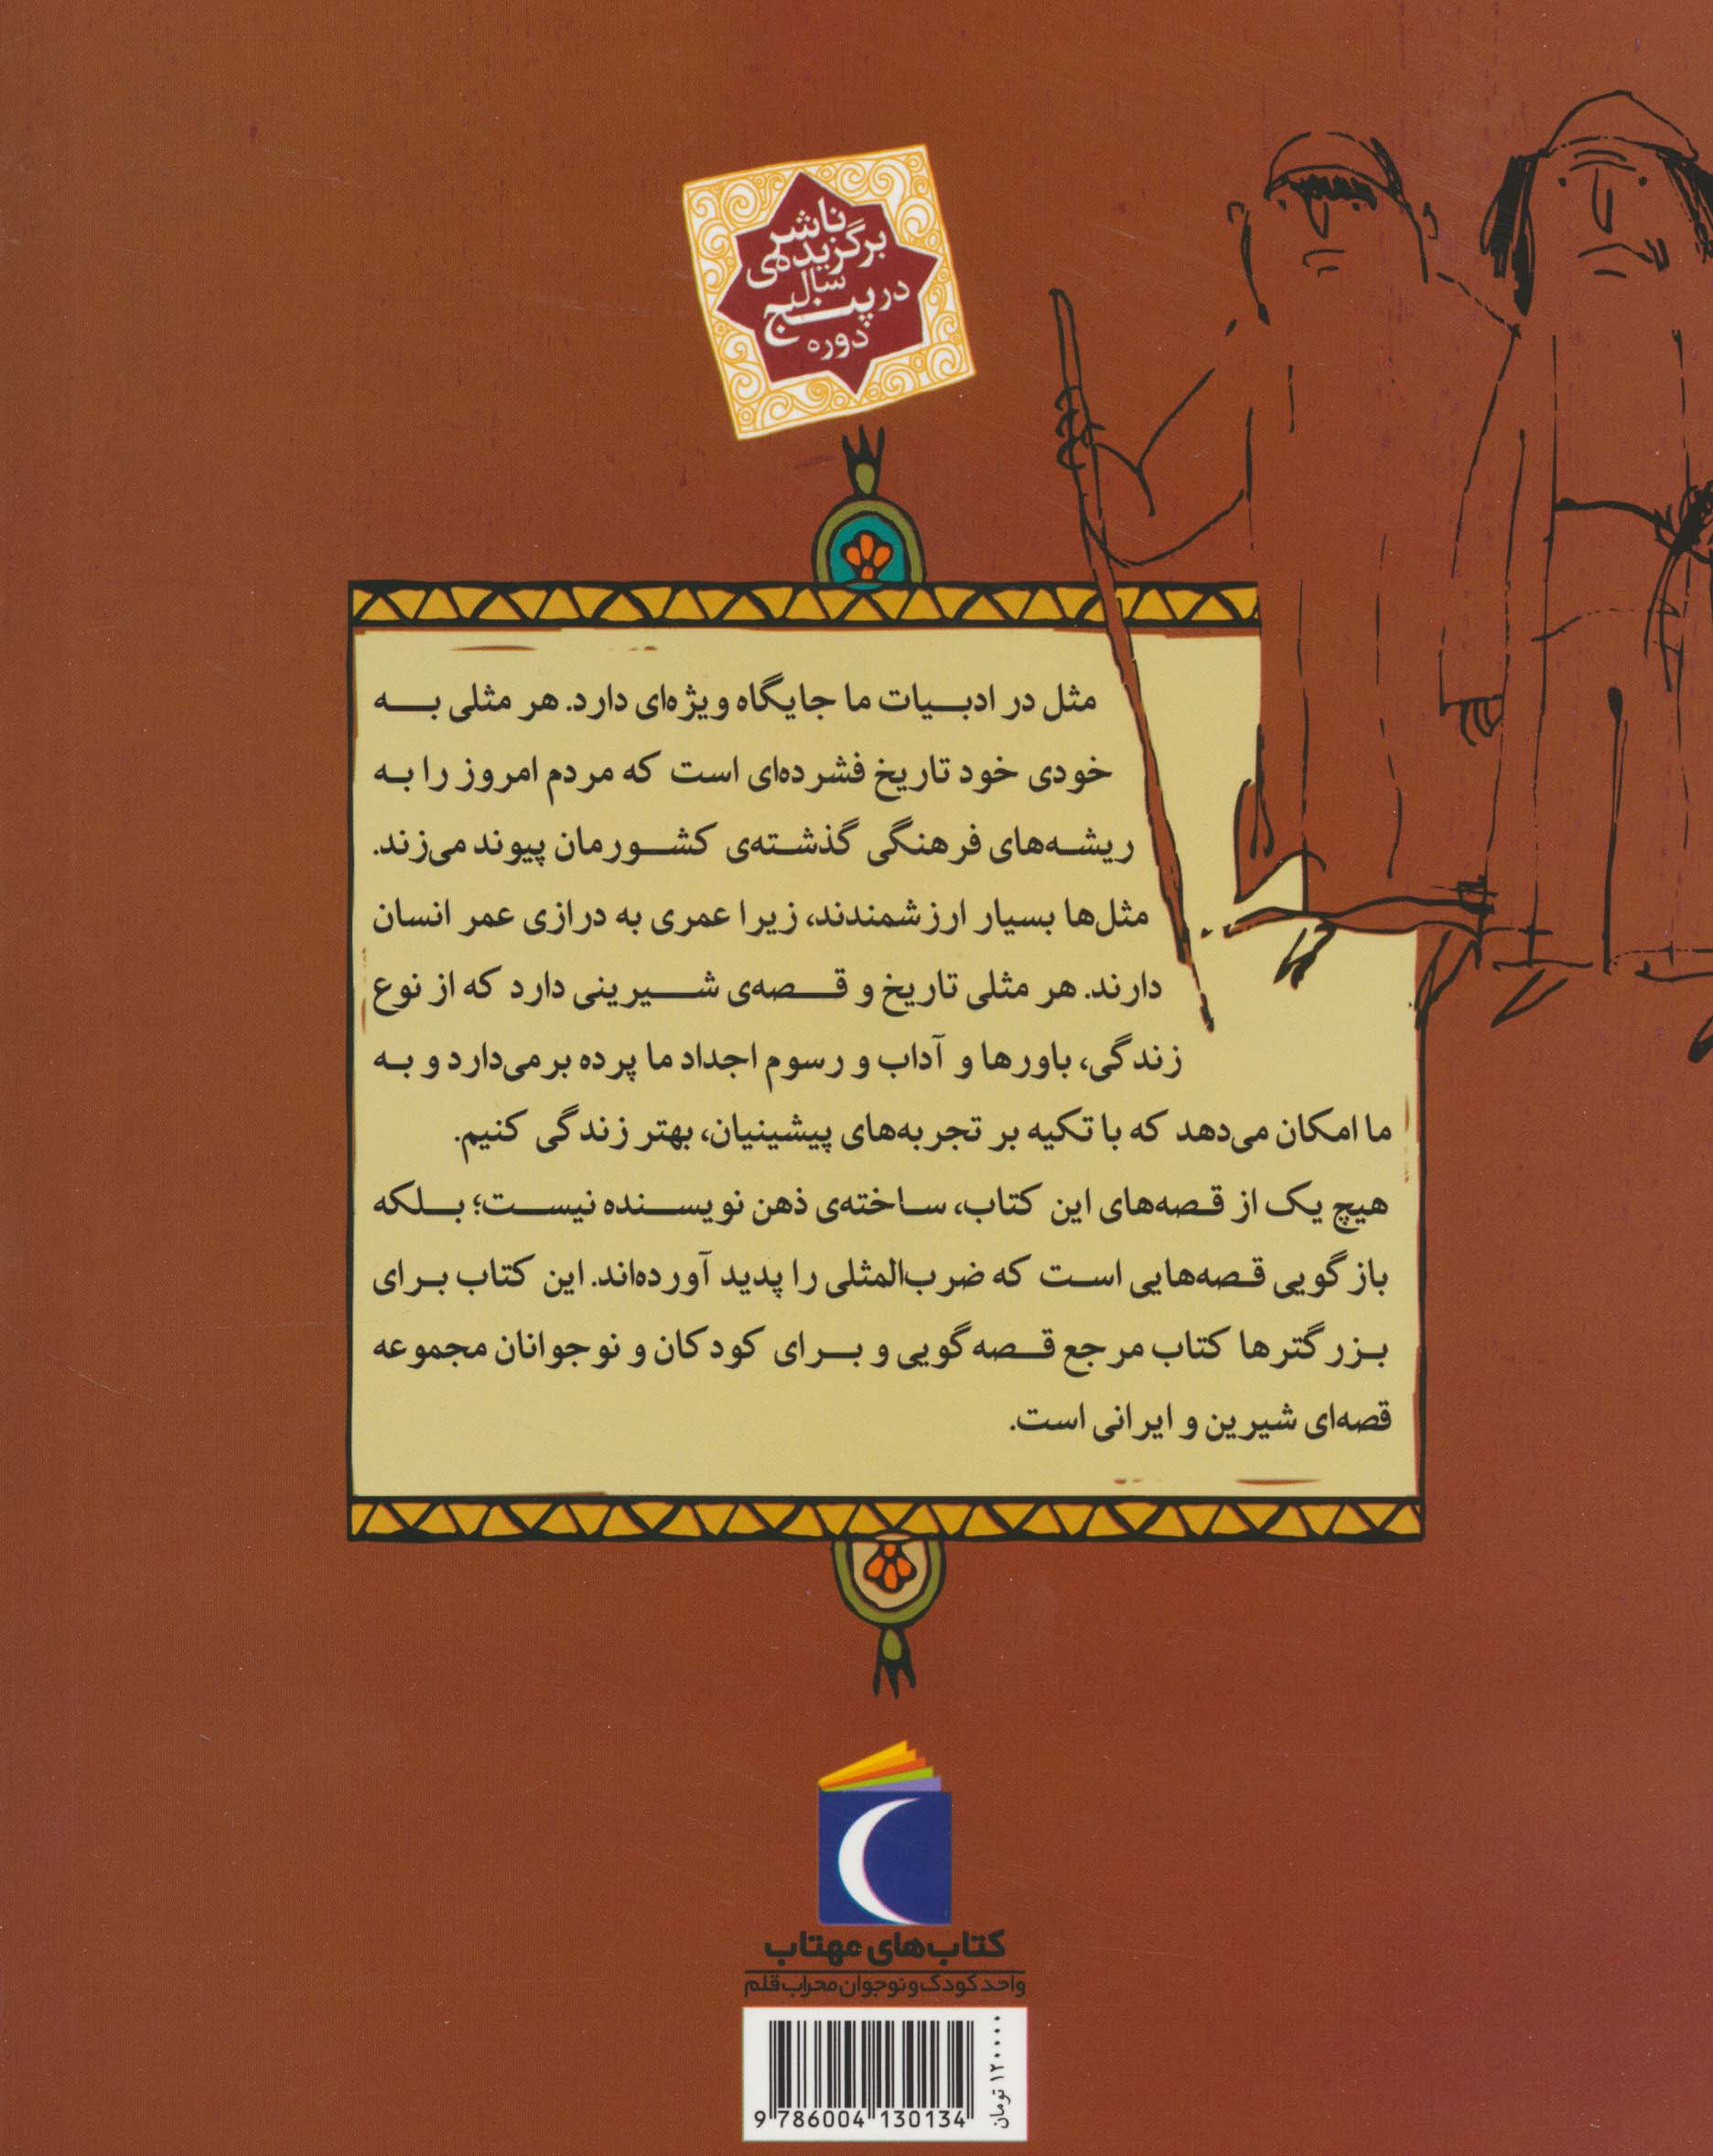 ناشر
برگزیده‌ی
سال
در پنج
دوره
مثل در ادبیات ما جایگاه ویژه‌ای دارد. هر مثلی به
خودی خود تاریخ فشرده‌ای است که مردم امروز را به
ریشه‌های فرهنگی گذشته‌ی کشورمان پیوند می‌زند.
مثل‌ها بسیار ارزشمندند، زیرا عمری به درازی عمر انسان
دارند. هر مثلی تاریخ و قصه‌ی شیرینی دارد که از نوع
زندگی، باورها و آداب و رسوم اجداد ما پرده برمی‌دارد و به
ما امکان می‌دهد که با تکیه بر تجربه‌های پیشینیان، بهتر زندگی کنیم.
هیچ یک از قصه‌های این کتاب، ساخته‌ی ذهن نویسنده نیست؛ بلکه
بازگویی قصه‌هایی است که ضرب‌المثلی را پدید آورده‌اند. این کتاب برای
بزرگترها کتاب مرجع قصه‌گویی و برای کودکان و نوجوانان مجموعه
قصه‌ای شیرین و ایرانی است.
کتاب‌های مهتاب
واحد کودک و نوجوان محراب قلم
۱۲۰۰۰۰ تومان
9 786004 130134